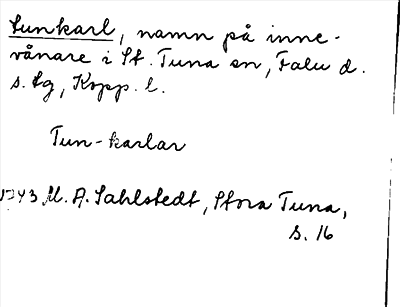 tunkarl, namn på inne-
vånare i St. Tuna sn, Falu d.
s. tg, Kopp. l.
Tun-karlar
1743 M. A. Sahlstedt, Stora Tuna,
s. 16